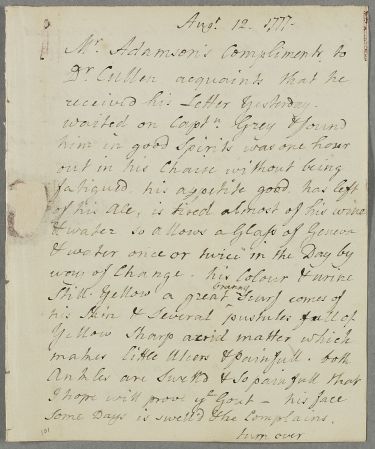 Augt. 12. 1777.
Mr. Adamson's Compliments to
Dr Cullen acquaints that he
received his Letter Yesterday.
waited on Captn. Grey & found
him in good Spirits was one hour
out in his Chaise without being
fatigued. his appetite good. has left
of his Ale, is tired almost of his wine
& water so allows a Glass of Geneva
& water once or twice in the Day by
way of Change. his Colour & urine
Still Yellow a great Scurf comes of
branny
his Skin & Several pustules full of
Yellow Sharp acrid matter which
makes little Ulcers & painfull. both
Ankles are Swell'd & so painfull that
I hope will prove ye Gout - his face
Some Days is swell'd & he Complains.
turn over